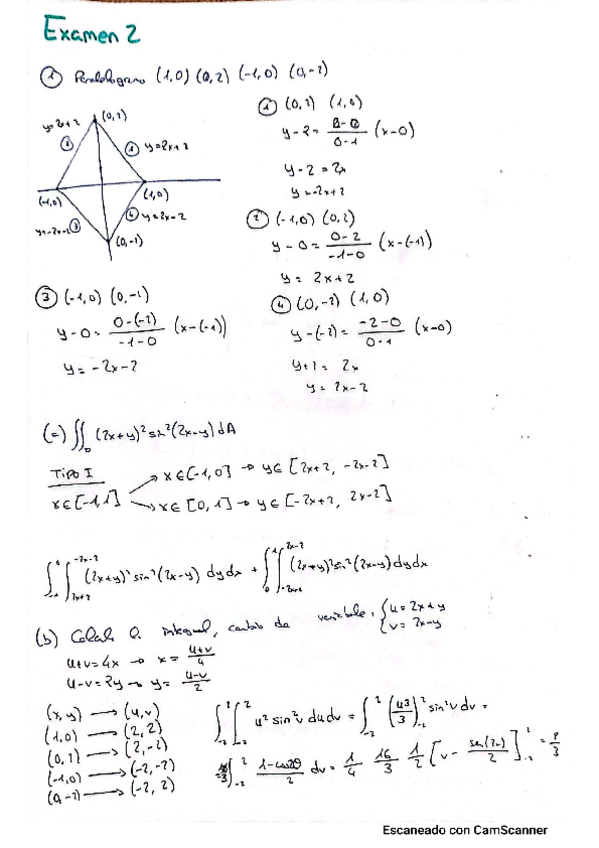 Examen 2
① Paralelogramo (1,0) (0,2) (-1,0) (0,-2)
① (0,2) (1,0)
y-2= 0-2/0-1 (x-0)
y-2 = 2x
y=-2x+2
y=2x+2
(0,2)
②
① y=2x+2
(-1,0)
(1,0)
y=-2x-2 ③
④ y=2x-2
(0,-1)
② (-1,0) (0,2)
y-0= 0-2/-1-0 (x-(-1))
y= 2x+2
③ (-1,0) (0,-1)
y-0= 0-(-2)/-1-0 (x-(-1))
y= -2x-2
④ (0,-2) (1,0)
y-(-2)= -2-0/0-1 (x-0)
y+2= 2x
y= 2x-2
(a) ∬_D (2x+y)² sin²(2x-y) dA
Tipo I
x∈[-1,1]
x∈[-1,0] → y∈[2x+2, -2x-2]
x∈[0,1] → y∈[-2x+2, 2x-2]
∫∫ (2x+y)² sin²(2x-y) dydx + ∫∫ (2x+y)² sin²(2x-y) dydx
(b) integral, cambio de variable: { u=2x+y
v=2x-y
u+v=4x → x= u+v/4
u-v=2y → y= u-v/2
(x,y) → (u,v)
(1,0) → (2,2)
(0,2) → (2,-2)
(-1,0) → (-2,-2)
(0,-2) → (-2,2)
∫_{-2}^{2} ∫_{-2}^{2} u² sin²v dudv = ∫_{-2}^{2} (u³/3)_{-2}^{2} sin²v dv =
∫_{-2}^{2} 1-cos2θ/2 dv= 1/4 16/3 1/2 [v- sen(2v)/2]_{-2}^{2} =
Escaneado con CamScanner